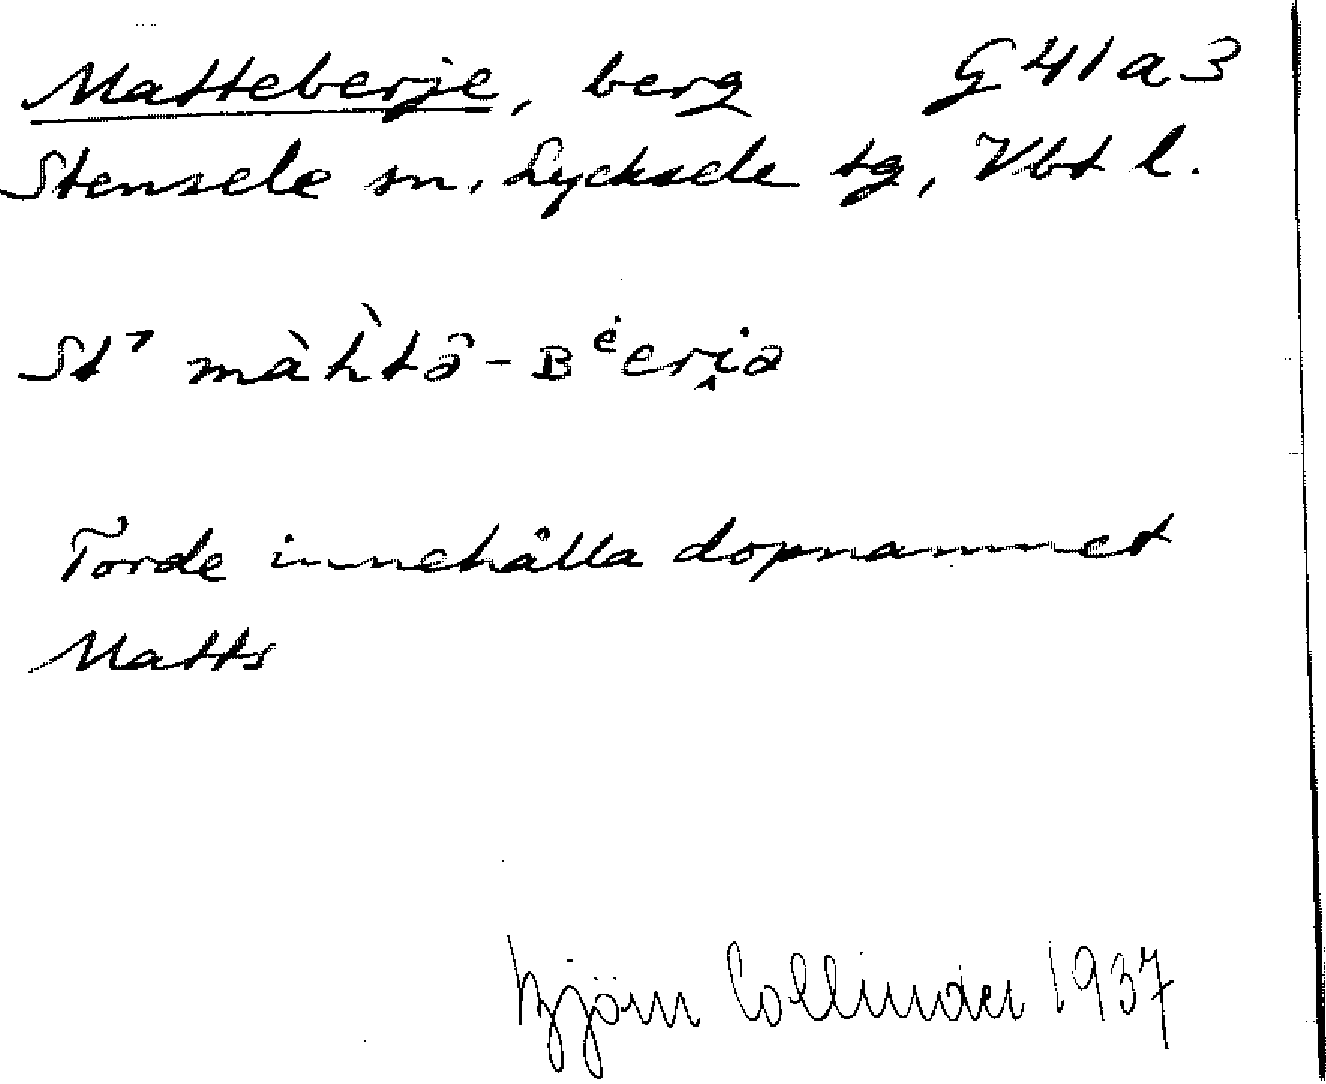 Matteberje, berg G 41 a 3
Stensele sn, Lycksele tg, Vbt l.
St⁷
Torde innehålla dopnamnet
Matts
Björn Collinder 1937